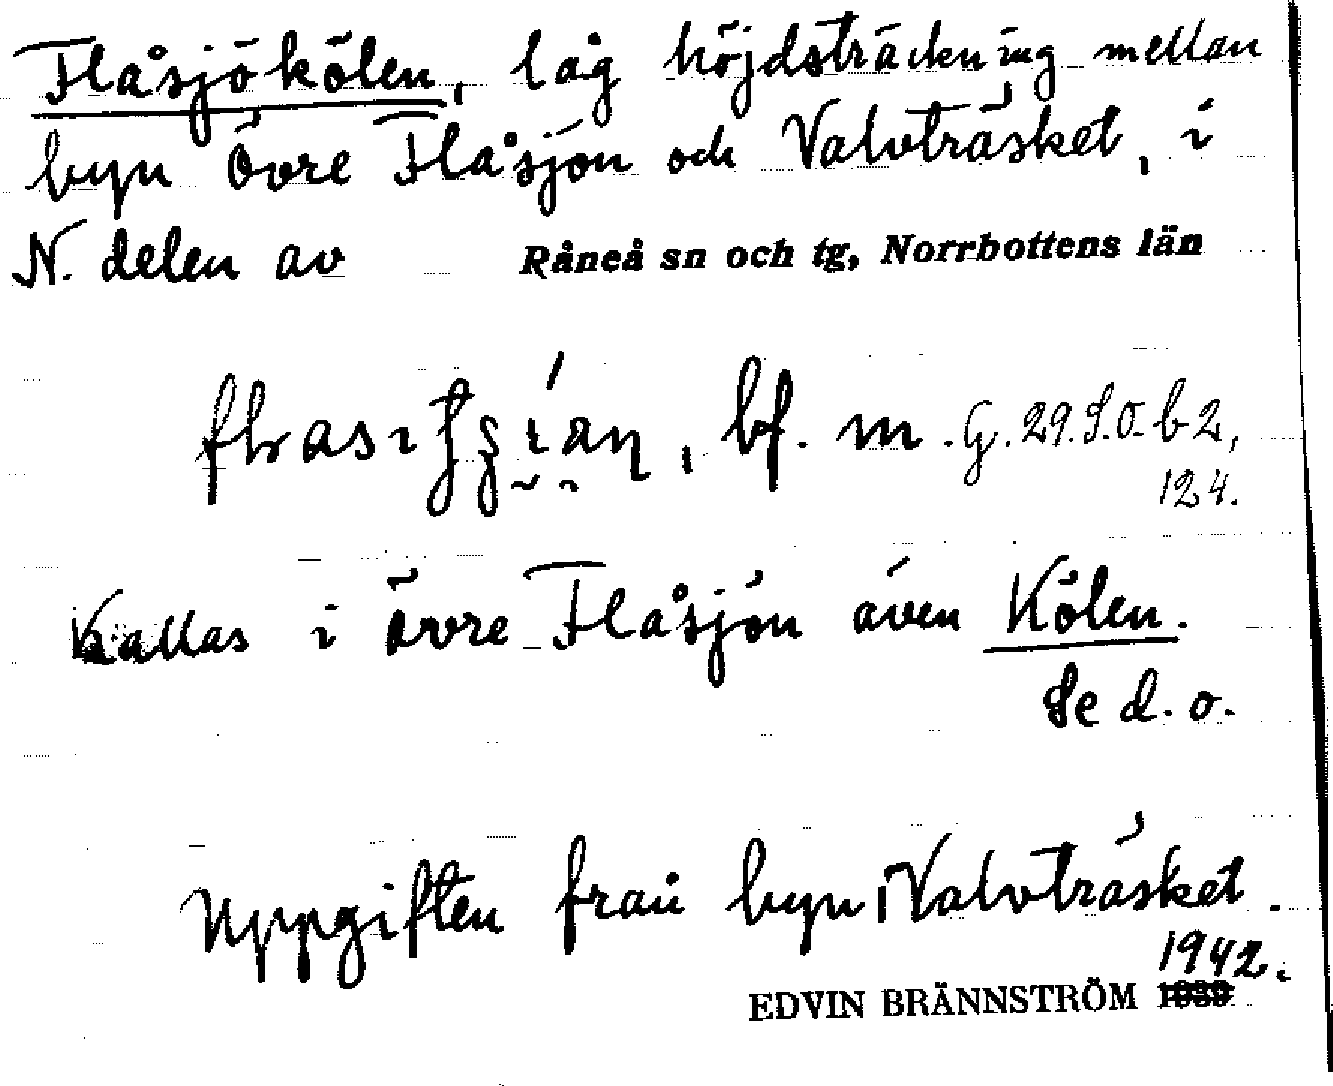 Flåsjökölen, låg höjdsträckning mellan
byn Övre Flåsjön och Valvträsket, i
N. delen av Råneå sn och tg, Norrbottens län
bf. m. G. 29. S. O. b 2,
124.
Kallas i övre Flåsjön även Kölen.
Se d. o.
Uppgiften från byn Valvträsket.
1942.
EDVIN BRÄNNSTRÖM 1939